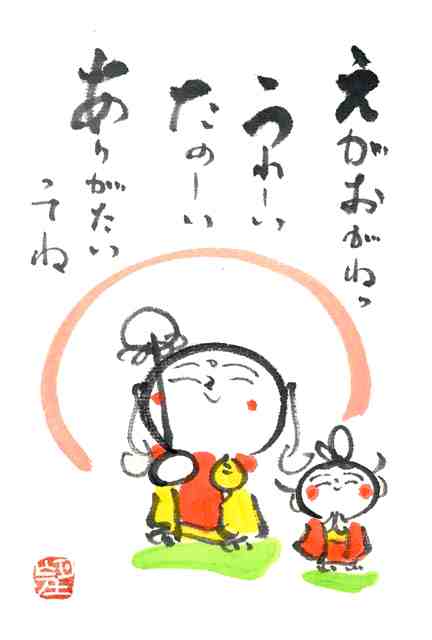 えがおがねっ
うれーい
たのーい
ありがたい
ってね